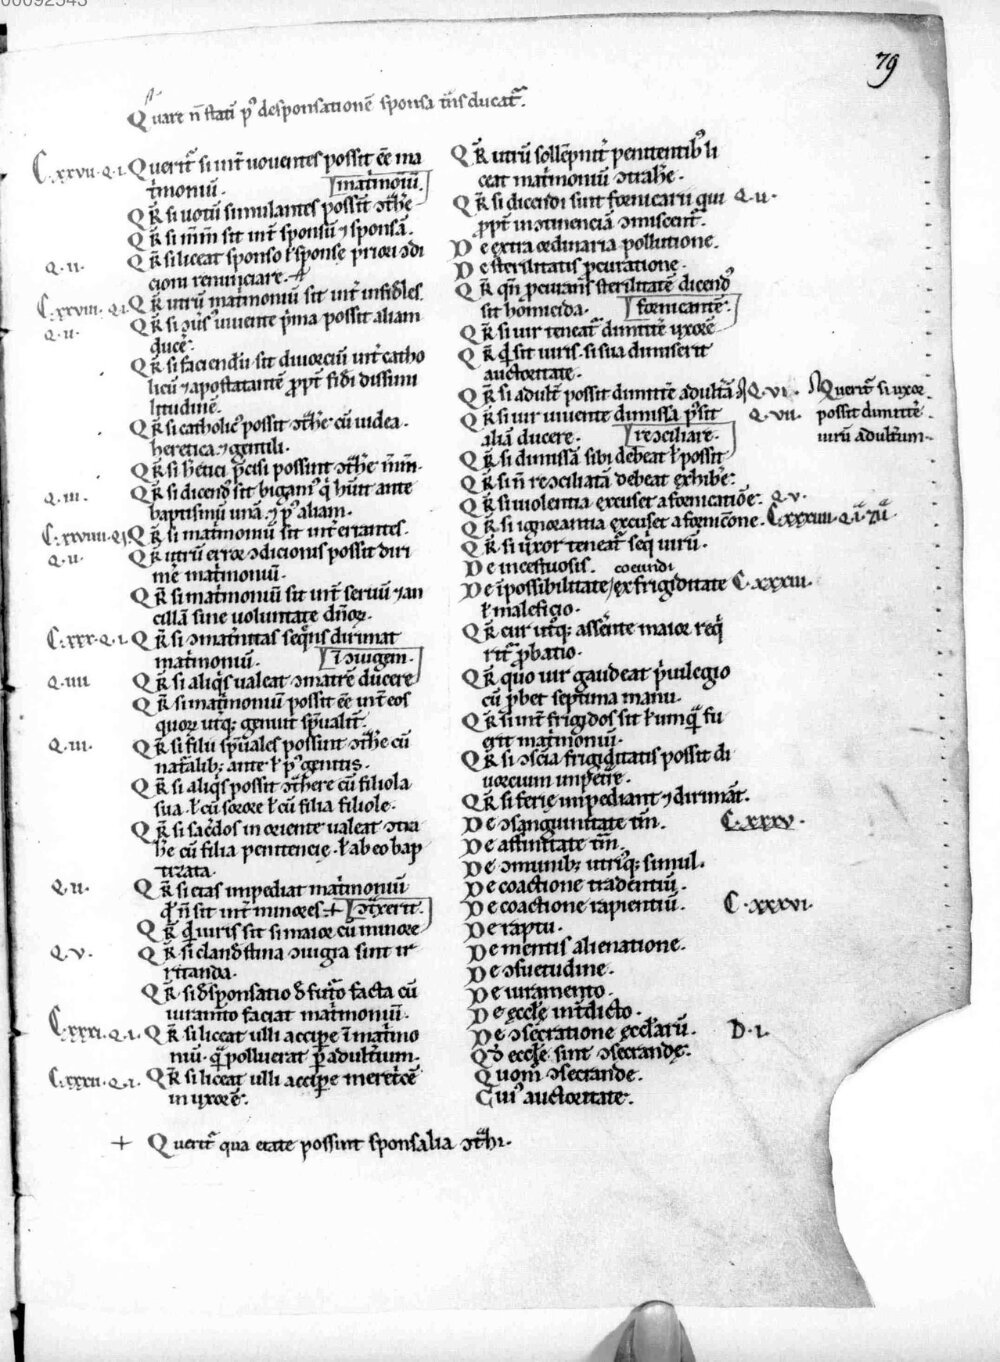 00092543
79
Quare ñ statī p⁹ desponsationē sponsa t̄ns ducat᷑.
C. xxvii. q. i. Querit᷑ si int̄ uouentes possit eē ma
t̄moniū. matīmoniū.
Q̄R si uotū simulantes possīt ↄt̄he
Q̄R si m̄m̄ sit int̄ sponsū ⁊ sponsā.
Q. ii. Q̄R si liceat sponso ł sponse priori ↄdi
cioni renunciare. +
C. xxviii. q. i. Q̄R utrū mat̄moniū sit int̄ infid̄les.
Q. ii. Q̄R si ↄiūs⁹ uiuente p̄ma possit aliam
ducē.
Q̄R si faciendū sit diuorciū int̄ catho
licū ⁊ apostatantē p̄pt̄ fid̄i dissimi
litudinē.
Q̄R si catholic⁹ possit ↄt̄he cū iudea.
heretica ⁊ gentili.
Q̄R si h̄etici p̄cisi possunt ↄt̄he m̄m̄.
Q. iii. Q̄R si dicend⁹ sit bigam⁹ q̄ hūit ante
baptismū unā ⁊ p⁹ aliam.
C. xxviiii. q. i. Q̄R si mat̄moniū sit int̄ errantes.
Q. ii. Q̄R utrū error ↄdicionis possit diri
mē mat̄moniū.
Q̄R si mat̄moniū sit int̄ seruū ⁊ an
cillā sine uoluntate dn̄oꝝ.
C. xxx. q. i. Q̄R si ↄmat̄nitas seq̄ns dirimat
mat̄moniū. ī ↄiugem.
Q. iiii Q̄R si aliq̄s ualeat ↄmatrē ducere
Q̄R si mat̄moniū possit eē int̄ eos
quoꝝ ut̄q; genuit sp̄ualit̄.
Q. iii. Q̄R si filii sp̄uales possunt ↄt̄he cū
nat̄alib; ante ł p⁹ genitis.
Q̄R si aliq̄s possit ↄt̄here cū filiola
sua ł cū sorore ł cū filia filiole.
Q̄R si sac̄dos in oriente ualeat ↄtra
h̄e cū filia penitencię ł ab eo bap
tizata.
Q. ii. Q̄R si etas impediat mat̄moniū
q̄ ñ sit int̄ minores + ↄt̄xerit.
Q̄R q̄d iuris sit si maior cū minore
Q. v. Q̄R si cland̄stina ↄiugia sint ir
ritanda.
Q̄R si d̄sponsatio d̄ fut̄o facta cū
iuram̄to faciat mat̄moniū.
C. xxxi. q. i. Q̄R si liceat ulli accip̄e ī mat̄imo
niū q̄m polluerat p̄ adult̄ium.
C. xxxii. q. i. Q̄R si liceat ulli accip̄e meret̄cē
in uxorē.
+ Querit᷑ qua etate possunt sponsalia ↄt̄hi.
Q̄R utrū sollēpnit᷑ penitentib⁹ li
ceat mat̄moniū ↄtrah̄e.
Q̄R si dicendi sunt fornicarii qui Q. ii.
p̄pt̄ incōtinenciā ↄmiscent᷑.
De extra ordinaria pollutione.
De sterilitatis p̄curatione.
Q̄R qn̄ p̄curans sterilitatē dicend⁹
sit homicida. fornicantē.
Q̄R si uir teneat᷑ dimittē uxorē
Q̄R q̄d sit iuris si sua dimiserit
auctoritate.
Q̄R si adult̄ possit dimittē adult̄ā Q. vi. Querit᷑ si uxor
possit dimittē
uirū adult̄um.
Q̄R si uir uiuente dimissa p⁹sit Q. vii.
aliā ducere. recↄciliare.
Q̄R si dimissā sibi debeat ł possit
Q̄R si ñ recↄciliatā debeat exhib̄e.
Q̄R si uiolentia excuset a fornicatiōe. Q. v.
Q̄R si ignorantia excuset a fornic̄one. C. xxxiiii. q. i. ⁊ ii.
Q̄R si uxor teneat᷑ seq̄ uirū.
De incestuosis. coeundi
De īpossibilitate / ex frigiditate C. xxxiii.
ł maleficio.
Q̄R cur ut̄q; assen̄te maior req̄
rit᷑ p̄batio.
Q̄R quo uir gaudeat p̄uilegio
cū p̄bet septima manu.
Q̄R si int̄ frigidos sit ł umq̄ fu
erit mat̄moniū.
Q̄R si ↄscīa frigiditatis possit di
uorcium imped̄ire.
Q̄R si ferię impediant ⁊ dirimāt.
De ↄsanguinitate tm̄. C. xxxv.
De affinitate tm̄.
De ↄmunib; utriq; simul.
De coactione tradentiū.
De coactione rapientiū. C. xxxvi.
De raptu.
De mentis alienatione.
De ↄsuetudine.
De iuramento.
De eccl̄e int̄dicto.
De ↄsecratione eccl̄arū. D. i.
Qd̄ eccl̄e sint ↄsecrandę.
Quom̄ ↄsecrande.
Cui⁹ auctoritate.